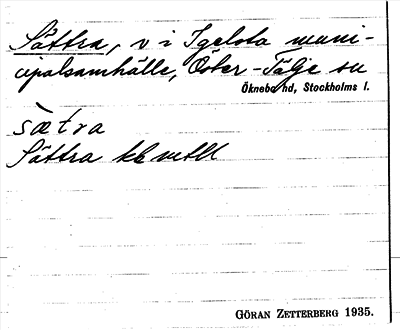 Sättra, v i Igelsta muni-
cipalsamhälle, Öster-Tälje sn
Öknebo hd, Stockholms l.
sætra
Sättra
GÖRAN ZETTERBERG 1935.